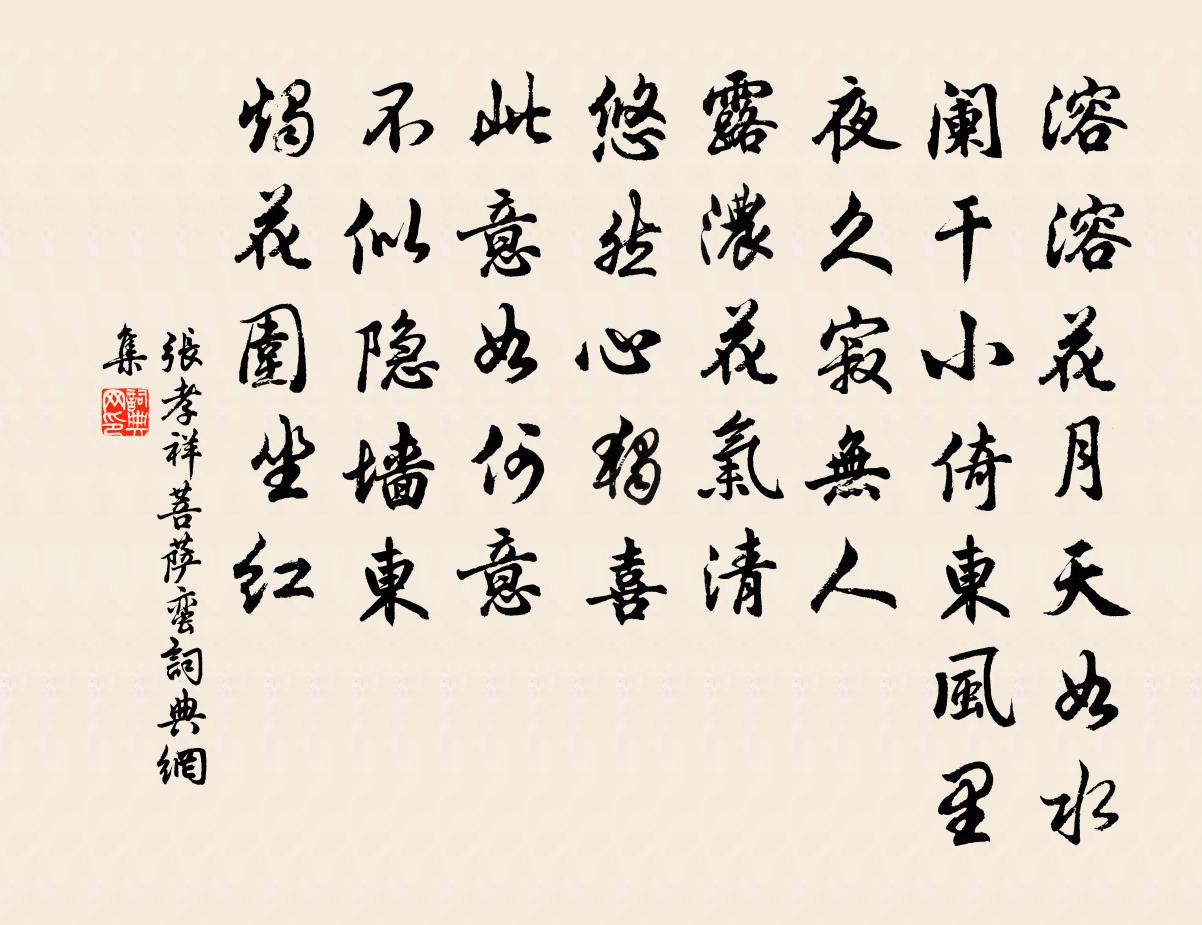 溶溶花月天如水
阑干小倚東風里
夜久寂無人
露濃花氣清
悠然心独喜
此意如何意
不似隐墙東
燭花圍坐红
張孝祥菩萨蛮詞典網
集
詞典
网印